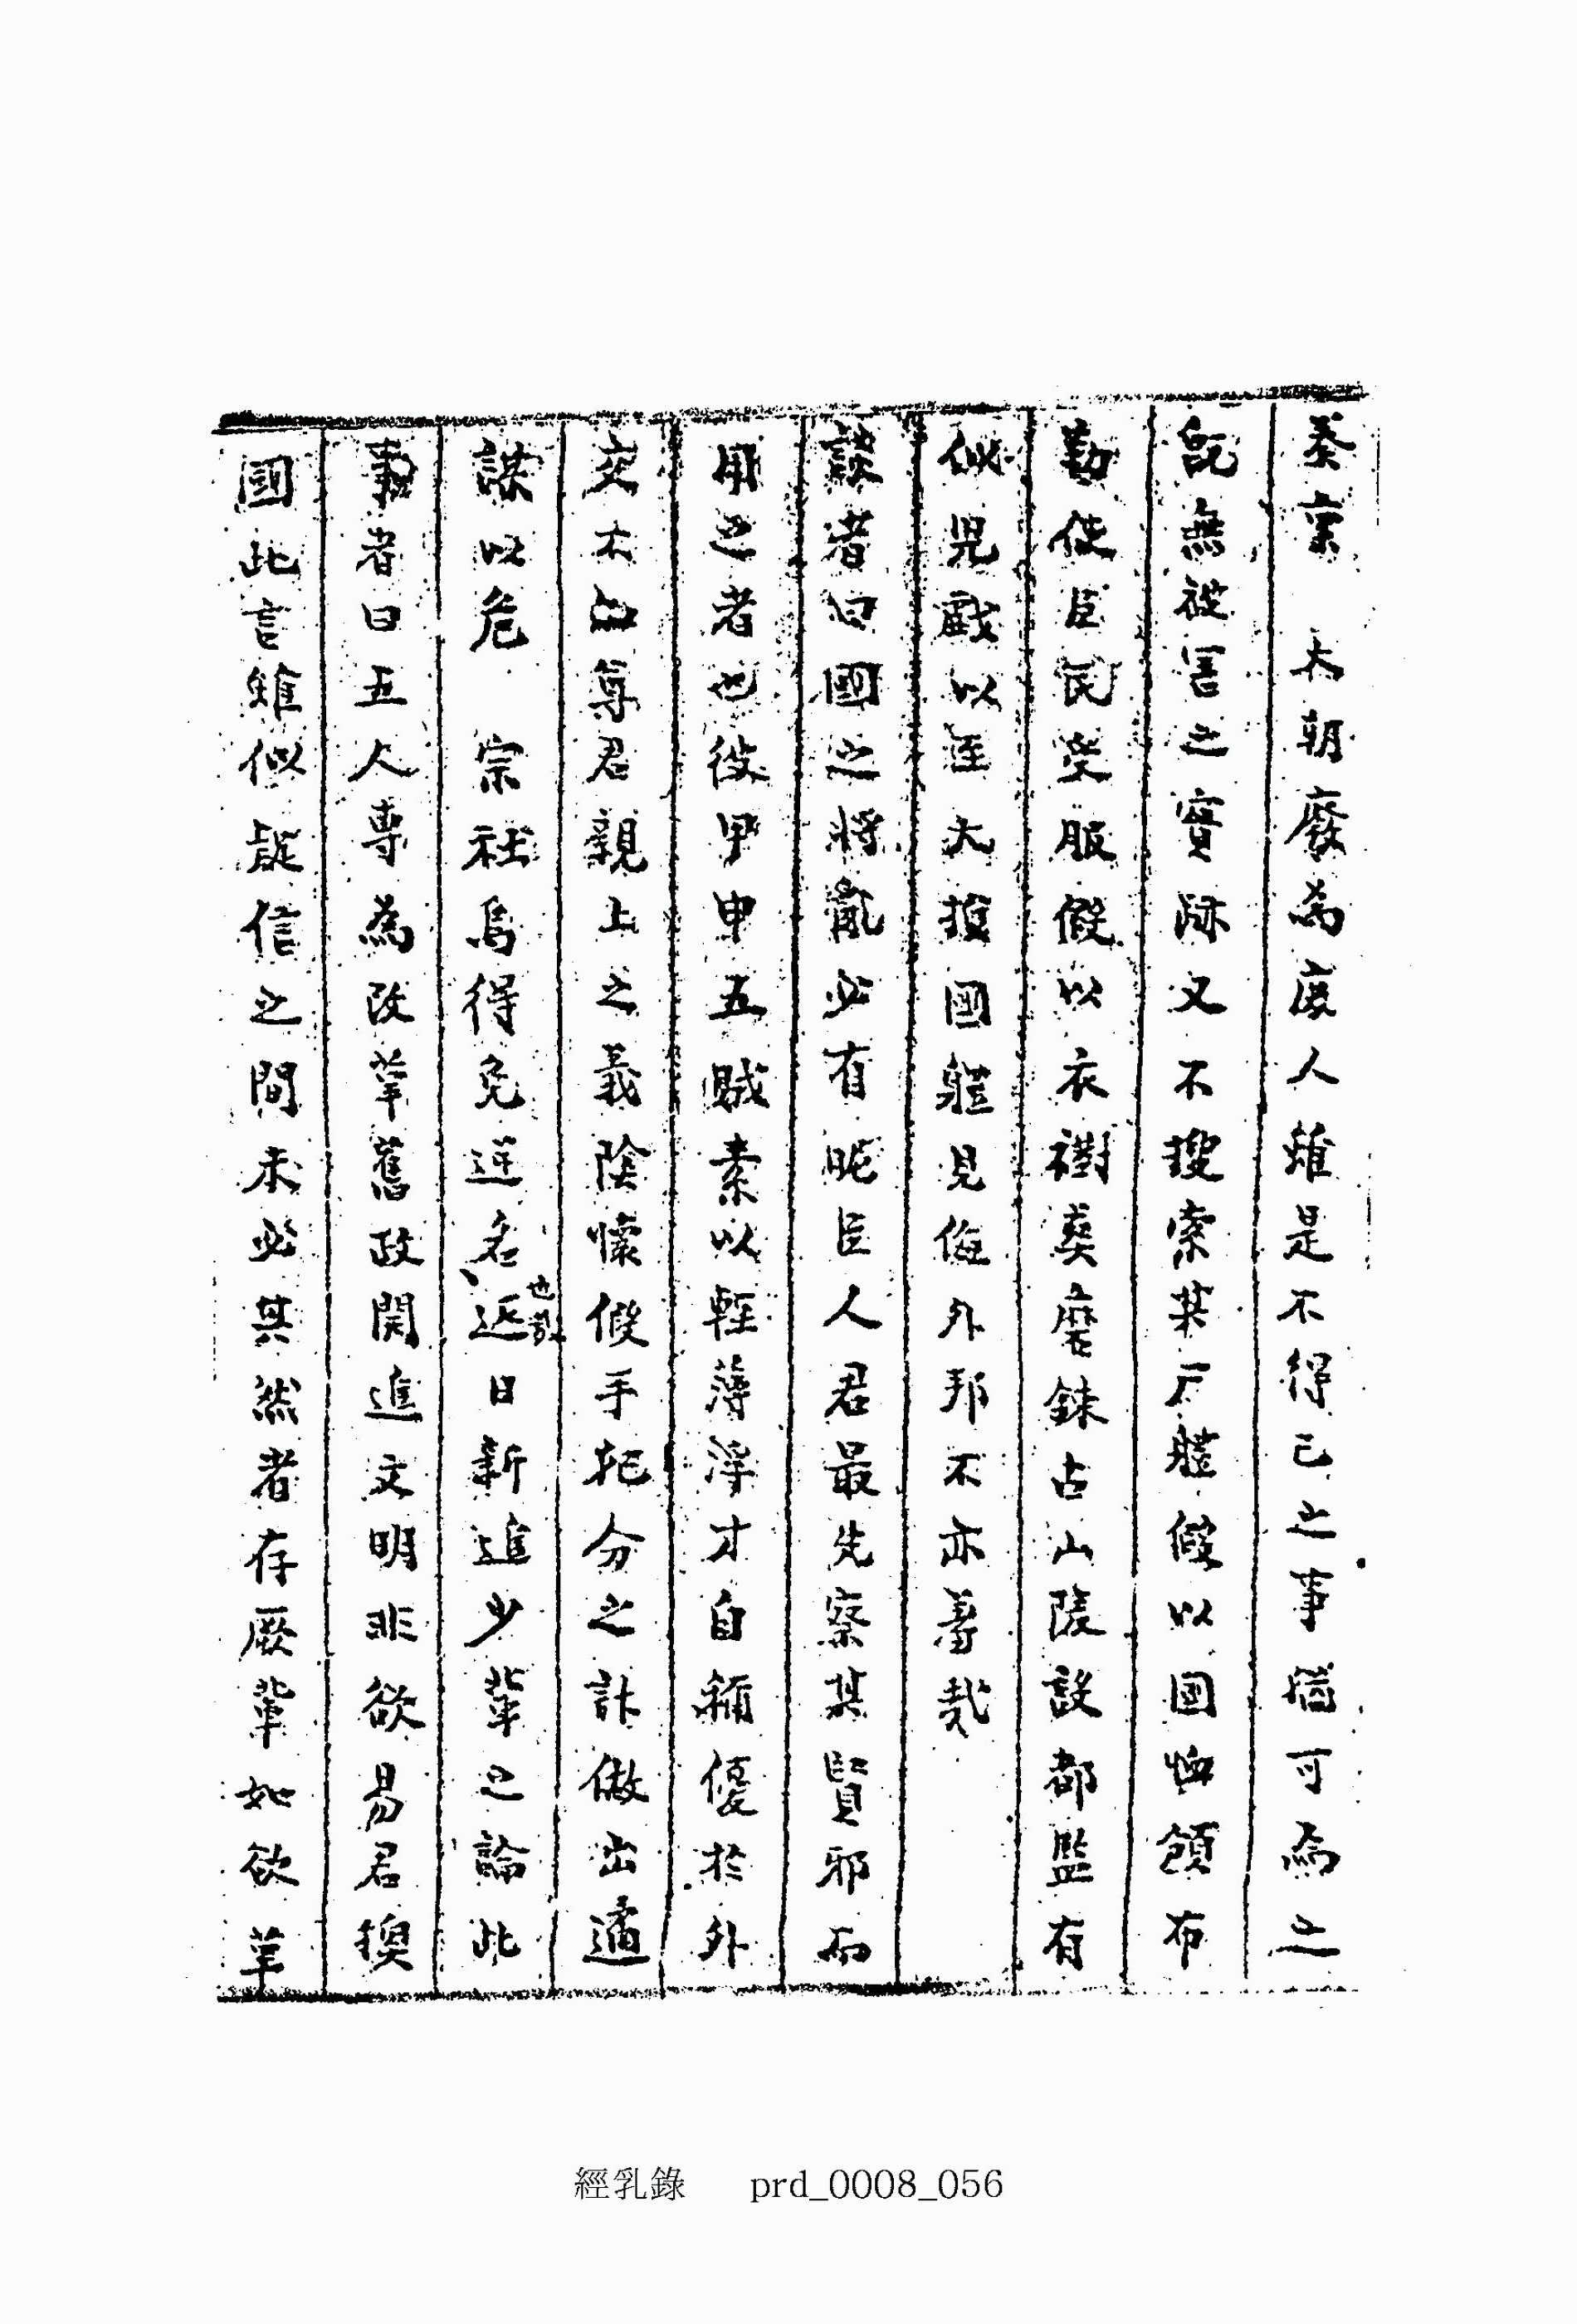 奏稟　大朝廢爲庶人雖是不得已之事猶可爲之
旣無被害之實跡又不搜索某尸體假以國恤頒布
勒使臣民受服假以衣襨奠魔銖占山陵設都監有
似兒戱以誣大損國體見侮外邦不亦辱哉
談者曰國之將亂必有昵臣人君最先察其賢邪而
用之者也彼甲申五賊素以輕薄浮才自稱優於外
交不知尊君親上之義陰懷假手托分之計倣出適
謀以危　宗社烏得免逆名也哉近日新進少輩之論此
事者曰五人專爲改革舊政開進文明非欲易君換
國此言雖似疑信之間未必其然者存厥輩如欲革
經乳錄　prd_0008_056